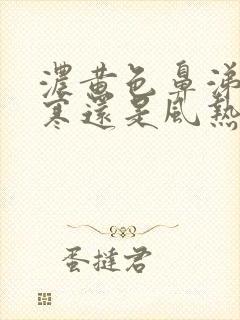 濃黃色鼻涕
寒還是風熱
蛋撻君